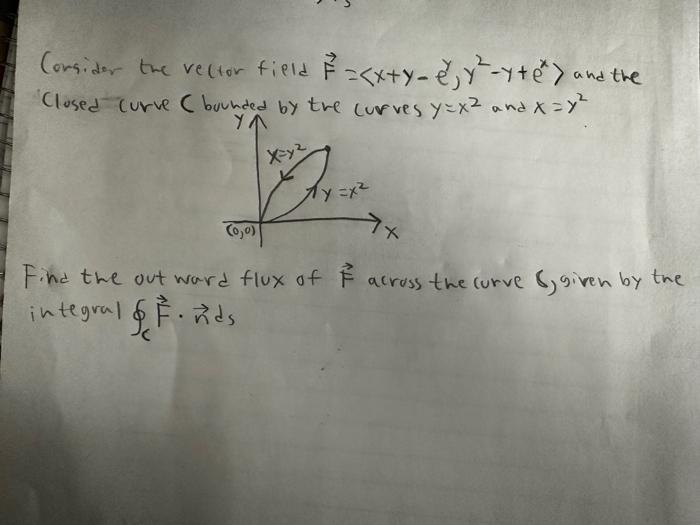 Consider the vector field F⃗ = <x+y-e^y, y^2-y+e^x> and the
closed curve C bounded by the curves y=x^2 and x=y^2
y
x=y^2
y=x^2
(0,0)
x
Find the outward flux of F⃗ across the curve C, given by the
integral ∮_C F⃗ · n⃗ ds